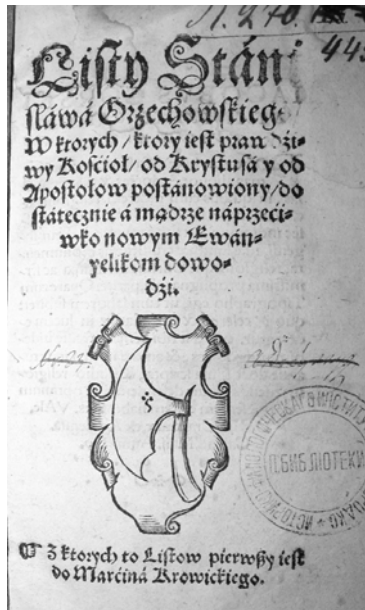 Listy Stáni
sláwá Orzechowskieg
W ktorych / ktory iest praw dźi-
wy Kośćioł / od Krystusá y od
Apostołow postánowiony / do
státecznie á mądrze náprzeći-
wko nowym Ewán-
yelikom dowo-
dźi.
БИБЛІОТЕКИ
Z ktorych to Listow pierwszy iest
do Marćiná Krowickiego.